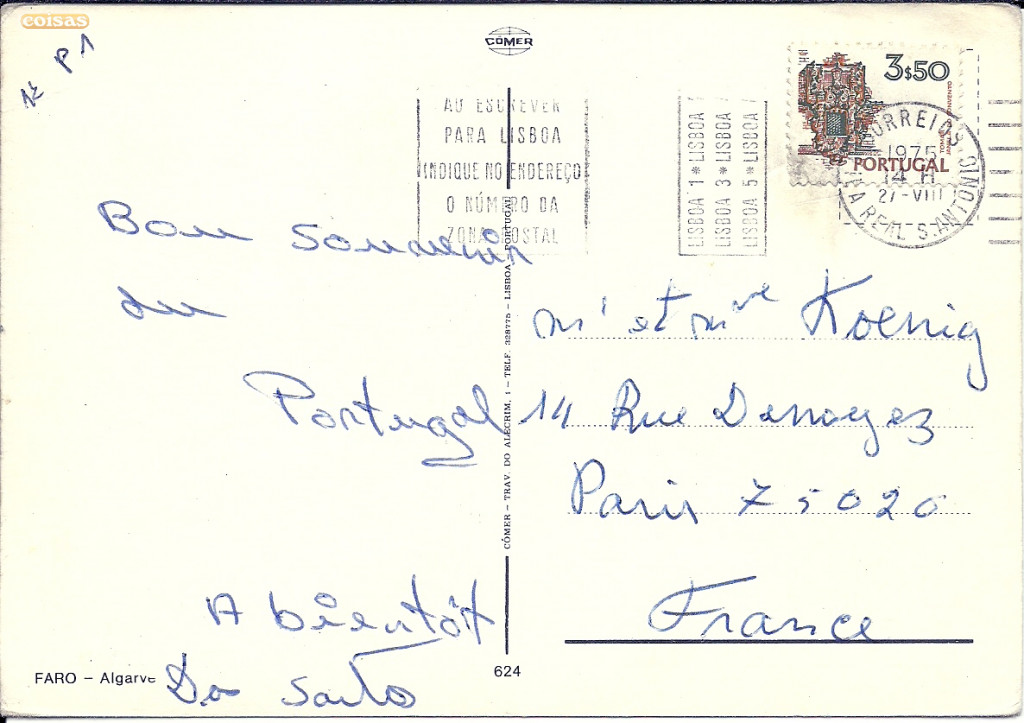 coisas
CÓMER
3$50
PORTUGAL
CORREIOS
1975
14 H
27-VIII
REAL S.ANTONIO
AO ESCREVER
PARA LISBOA
INDIQUE NO ENDEREÇO
O NÚMERO DA
ZONA POSTAL
LISBOA 1 * LISBOA
LISBOA 3 * LISBOA
LISBOA 5 * LISBOA
Bon Souvenir
du
Portugal
A bientôt
Dos Santos
mr et mme Koenig
14 Rue Desnoyez
Paris 75020
France
CÓMER — TRAV. DO ALECRIM, 1 — TELF. 328775 — LISBOA — PORTUGAL
FARO – Algarve
624